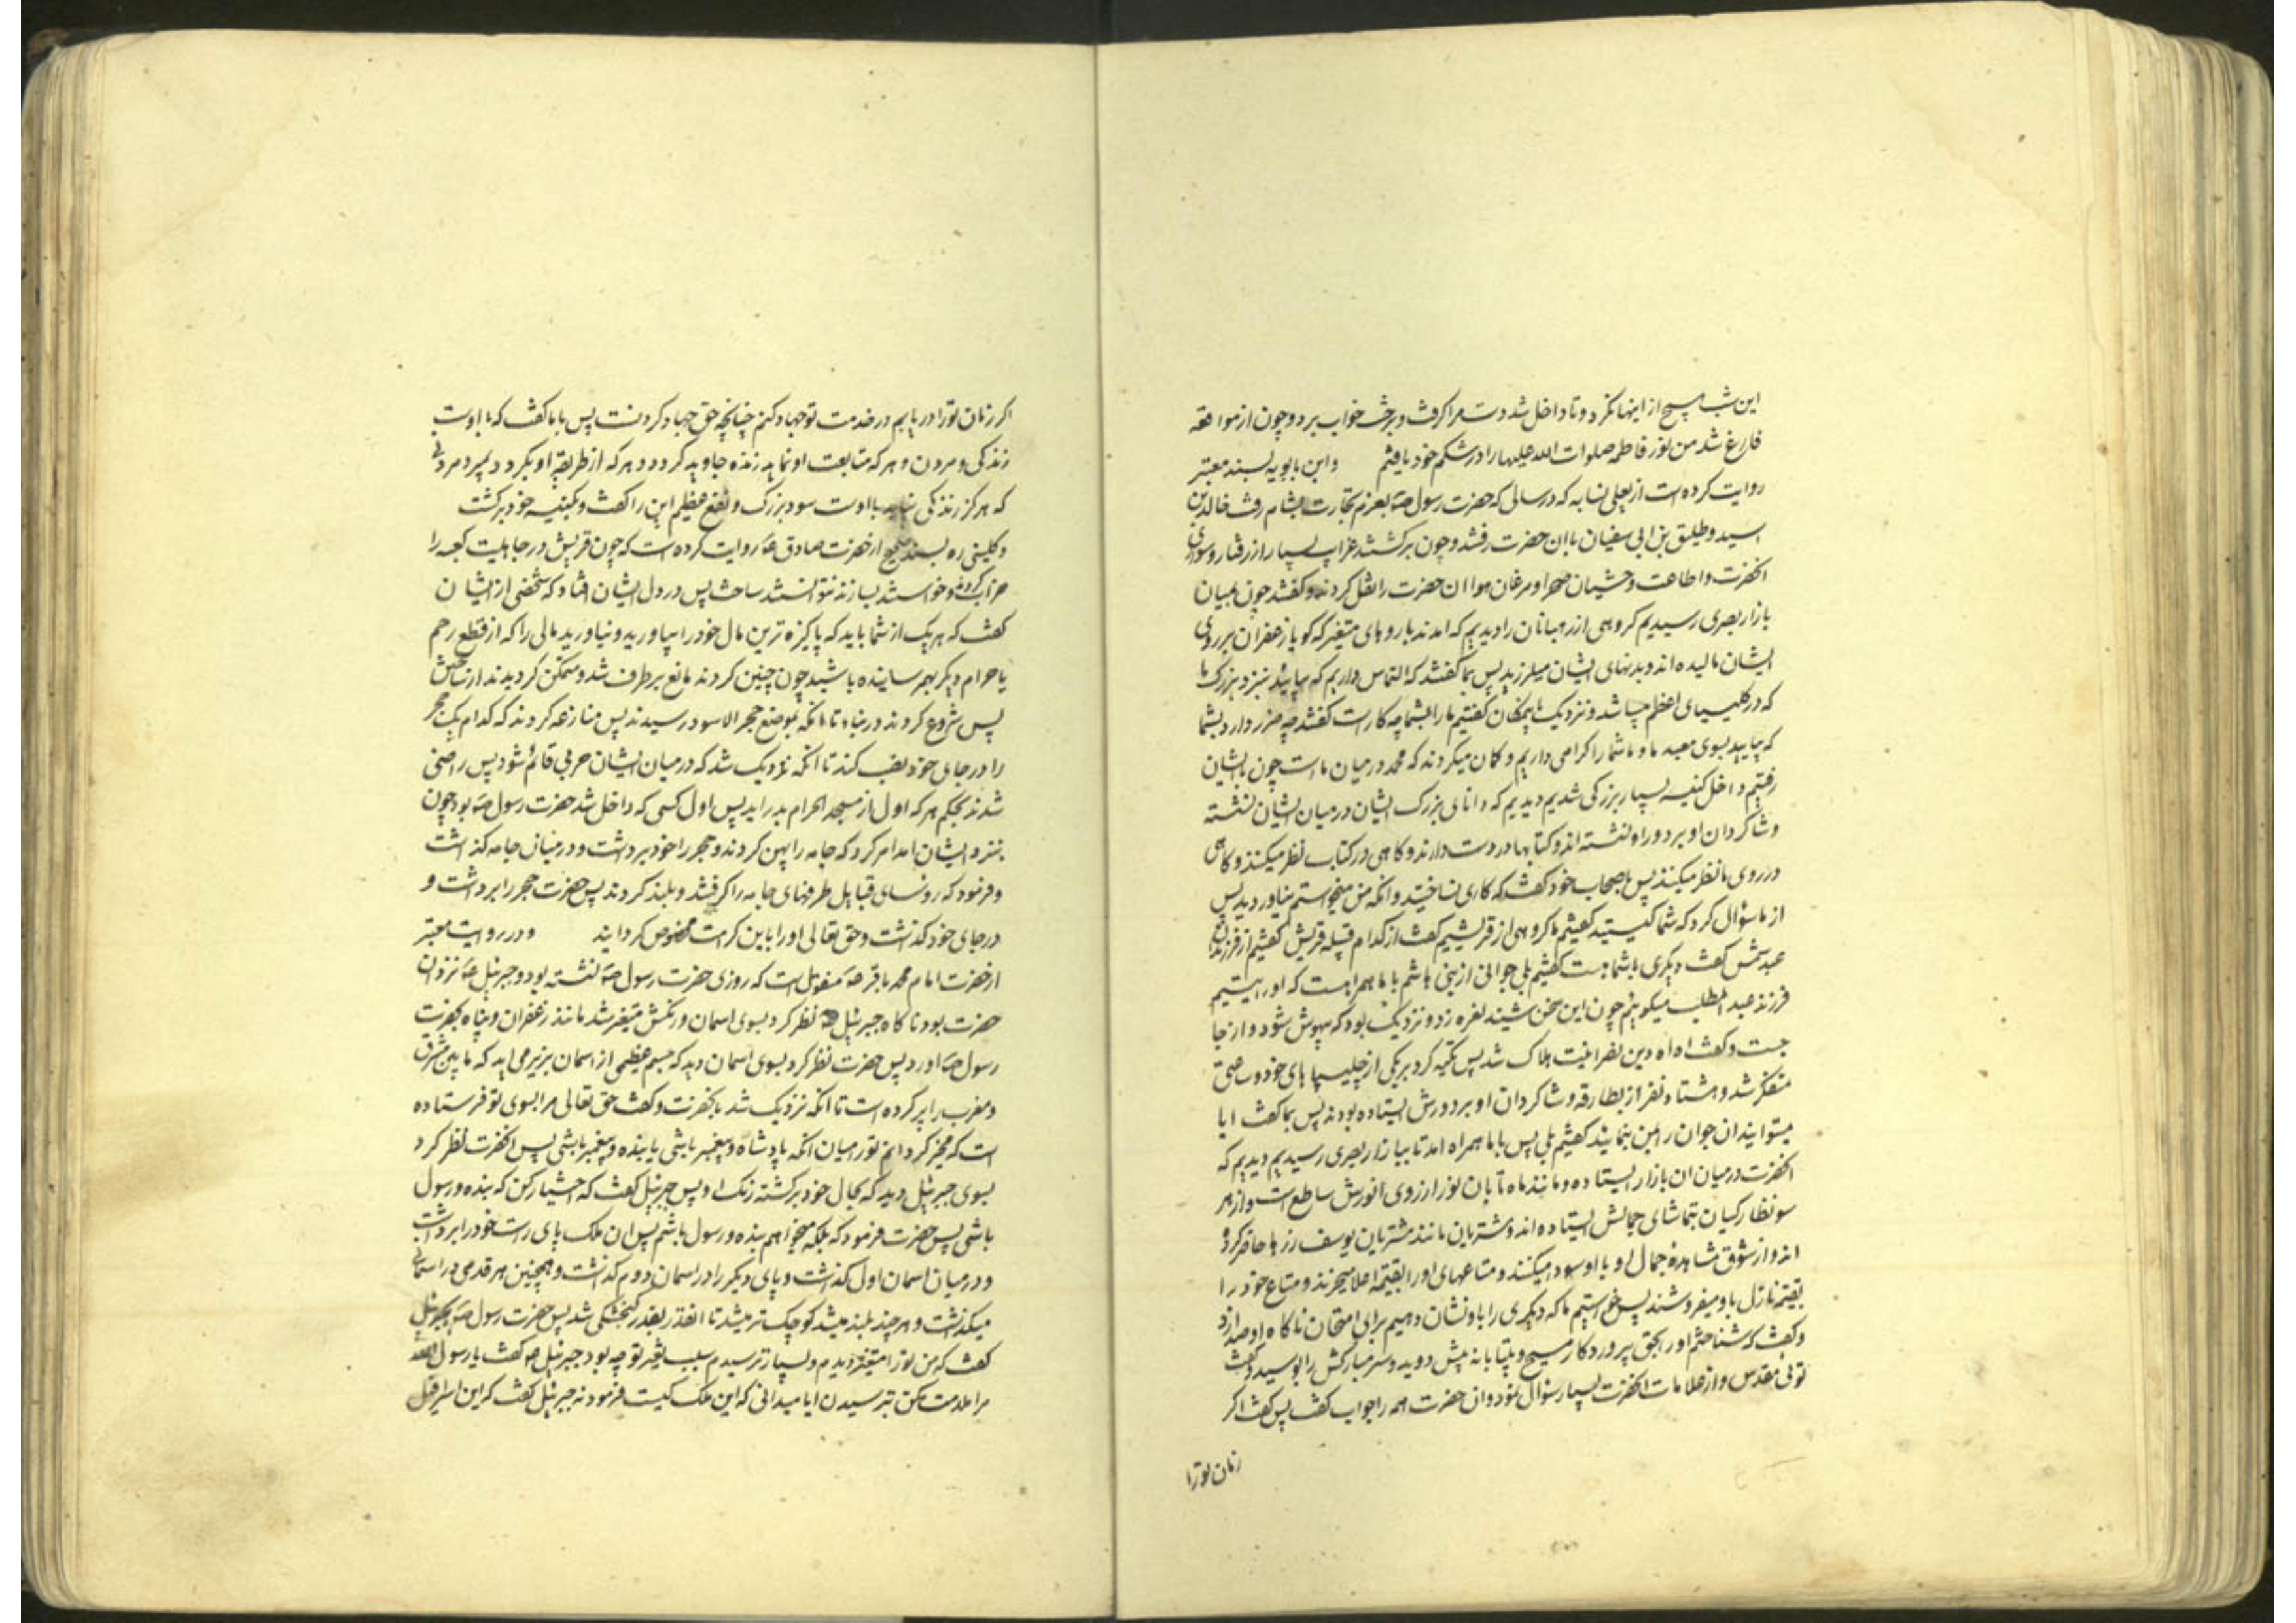 این شب هیچ از اینها نکرد و تا داخل شد دست مرا کرفت و برخت خواب برد و چون از مواقعه
فارغ شد من نور فاطمه صلوات الله علیها را در شکم خود یافتم وابن بابویه بسند معتبر
روایت کرده است از یعلی نسابه که در سالی که حضرت رسول صه بعزم تجارت بشام رفت خالد بن
اسید و طلیق بن ابی سفیان با ان حضرت رفتند و چون برکشتند غرایب بسیار از رفتار و سواری
انحضرت و اطاعت وحشیان صحرا و مرغان هوا ان حضرت را نقل کردند و کفتند چون بمیان
بازار بصری رسیدیم کروهی از رهبانان را دیدیم که امدند با روهای متغیر که کویا زعفران بر روی
ایشان مالیده اند و بدنهای ایشان میلرزید پس بما کفتند که التماس داریم که بیائید بنزد بزرک ما
که در کلیسیای اعظم میباشد و نزدیک باین مکان کفتیم ما را بشما چه کار است کفتند چه ضرر دارد بشما
که بیایید بسوی معبد ما و ما شما را کرامی داریم و کمان میکردند که محمد در میان ما است چون با ایشان
رفتیم و داخل کنیسه بسیار بزرکی شدیم دیدیم که دانای بزرک ایشان در میان ایشان نشسته
و شاکردان او بر دور او نشسته اند و کتابها در دست دارند و کاهی در کتاب نظر میکنند و کاهی
در روی ما نظر میکنند پس باصحاب خود کفت که کاری نساختید و انکه من میخواستم نیاوردید پس
از ما سؤال کرد که شما کیستید کفتیم ما کروهی از قریشیم کفت از کدام قبیله قریش کفتیم از فرزندان
عبد شمس کفت دیکری با شما هست کفتیم بلی جوانی از بنی هاشم با ما همراهست که او را یتیم
فرزند عبد المطلب میکوئیم چون این سخن شنید نعره زد و نزدیک بود که بیهوش شود و از جا
جست و کفت اه اه دین نصرانیت هلاک شد پس تکیه کرد بر یکی از چلیپا های خود و ساعتی
متفکر شد و هشتاد نفر از بطارقه و شاکردان او بر دورش ایستاده بودند پس بما کفت ایا
میتوانید ان جوان را بمن بنمایند کفتیم بلی پس با ما همراه امد تا ببازار بصری رسیدیم دیدیم که
انحضرت در میان ان بازار ایستاده و مانند ماه تابان نور از روی انورش ساطع است و از هر
سو نظارکیان بتماشای جمالش ایستاده اند و مشتریان مانند مشتریان یوسف زرها حاضر کرده
اند و از شوق مشاهده جمال او با او سودا میکنند و متاعهای او را بقیمه اعلا میخرند و متاع خود را
بقیمه نازل باو میفروشند پس خواستیم ما که دیکری را باو نشان دهیم برای امتحان ناکاه او صدا زد
و کفت که شناختم او را بحق پروردکار مسیح و بیتابانه پیش دوید و سر مبارکش را بوسید و کفت
توئی مقدس و از علامات انحضرت بسیار سؤال نمود و ان حضرت همه را جواب کفت پس کفت اکر
زمان تو را
اکر زمان تو را دریابم در خدمت تو جهاد کنم چنانچه حق جهاد کردنست پس با ما کفت که با اوست
زندکی و مردن و هر که متابعت او نماید زنده جاوید کردد و هر که از طریقه او بکردد بمیرد مردنی
که هرکز زندکی نیابد با اوست سود بزرک و نفع عظیم این را کفت و بکنیسه خود برکشت
و کلینی ره بسند صحیح از حضرت صادق ع روایت کرده است که چون قریش در جاهلیت کعبه را
خراب کردند و خواستند بسازند نتوانستند ساخت پس در دل ایشان افتاد که شخصی از ایشان
کفت که هر یک از شما باید که پاکیزه ترین مال خود را بیاورید و نیاورید مالی را که از قطع رحم
یا حرام دیکر بهم رسانیده باشید چون چنین کردند مانع برطرف شد و ممکن کردیدند از ساختن
پس شروع کردند در بناء تا انکه بموضع حجر الاسود رسیدند پس منازعه کردند که کدام یک حجر
را در جای خود نصب کند تا انکه نزدیک شد که در میان ایشان حربی قائم شود پس راضی
شدند بحکم هر که اول از مسجد الحرام بدر اید پس اول کسی که داخل شد حضرت رسول صه بود چون
بنزد ایشان امد امر کرد که جامه را پهن کردند و حجر را خود برداشت و در میان جامه کذاشت
و فرمود که روسای قبایل طرفهای جامه را کرفتند و بلند کردند پس حضرت حجر را برداشت و
در جای خود کذاشت و حق تعالی او را باین کرامت مخصوص کردانید و در روایت معتبر
از حضرت امام محمد باقر صه منقولست که روزی حضرت رسول صه نشسته بود و جبرئیل صه نزد ان
حضرت بود ناکاه جبرئیل صه نظر کرد بسوی اسمان و رنکش متغیر شد مانند زعفران و پناه بحضرت
رسول صه اورد پس حضرت نظر کرد بسوی اسمان دید که جسم عظیمی از اسمان بزیر می اید که ما بین مشرق
و مغرب را پر کرده است تا انکه نزدیک شد بانحضرت و کفت حق تعالی مرا بسوی تو فرستاده
است که مخیر کردانم تو را میان انکه پادشاه و پیغمبر باشی یا بنده و پیغمبر باشی پس انحضرت نظر کرد
بسوی جبرئیل دید که بحال خود برکشته رنک او پس جبرئیل کفت که اختیار کن که بنده و رسول
باشی پس حضرت فرمود که بلکه میخواهم بنده و رسول باشم پس ان ملک پای راست خود را برداشت
و در میان اسمان اول کذاشت و پای دیکر را در اسمان دووم کذاشت و همچنین هر قدمی در اسمانی
میکذاشت و هر چند بلند میشد کوچکتر میشد تا انقدر بقدر کنجشکی شد پس حضرت رسول صه بجبرئیل
کفت که من تو را متغیر دیدم و بسیار ترسیدم سبب تغیر تو چه بود جبرئیل صه کفت یا رسول الله
مرا ملامت مکن بترسیدن ایا میدانی که این ملک کیست فرمود نه جبرئیل کفت که این اسرافیل